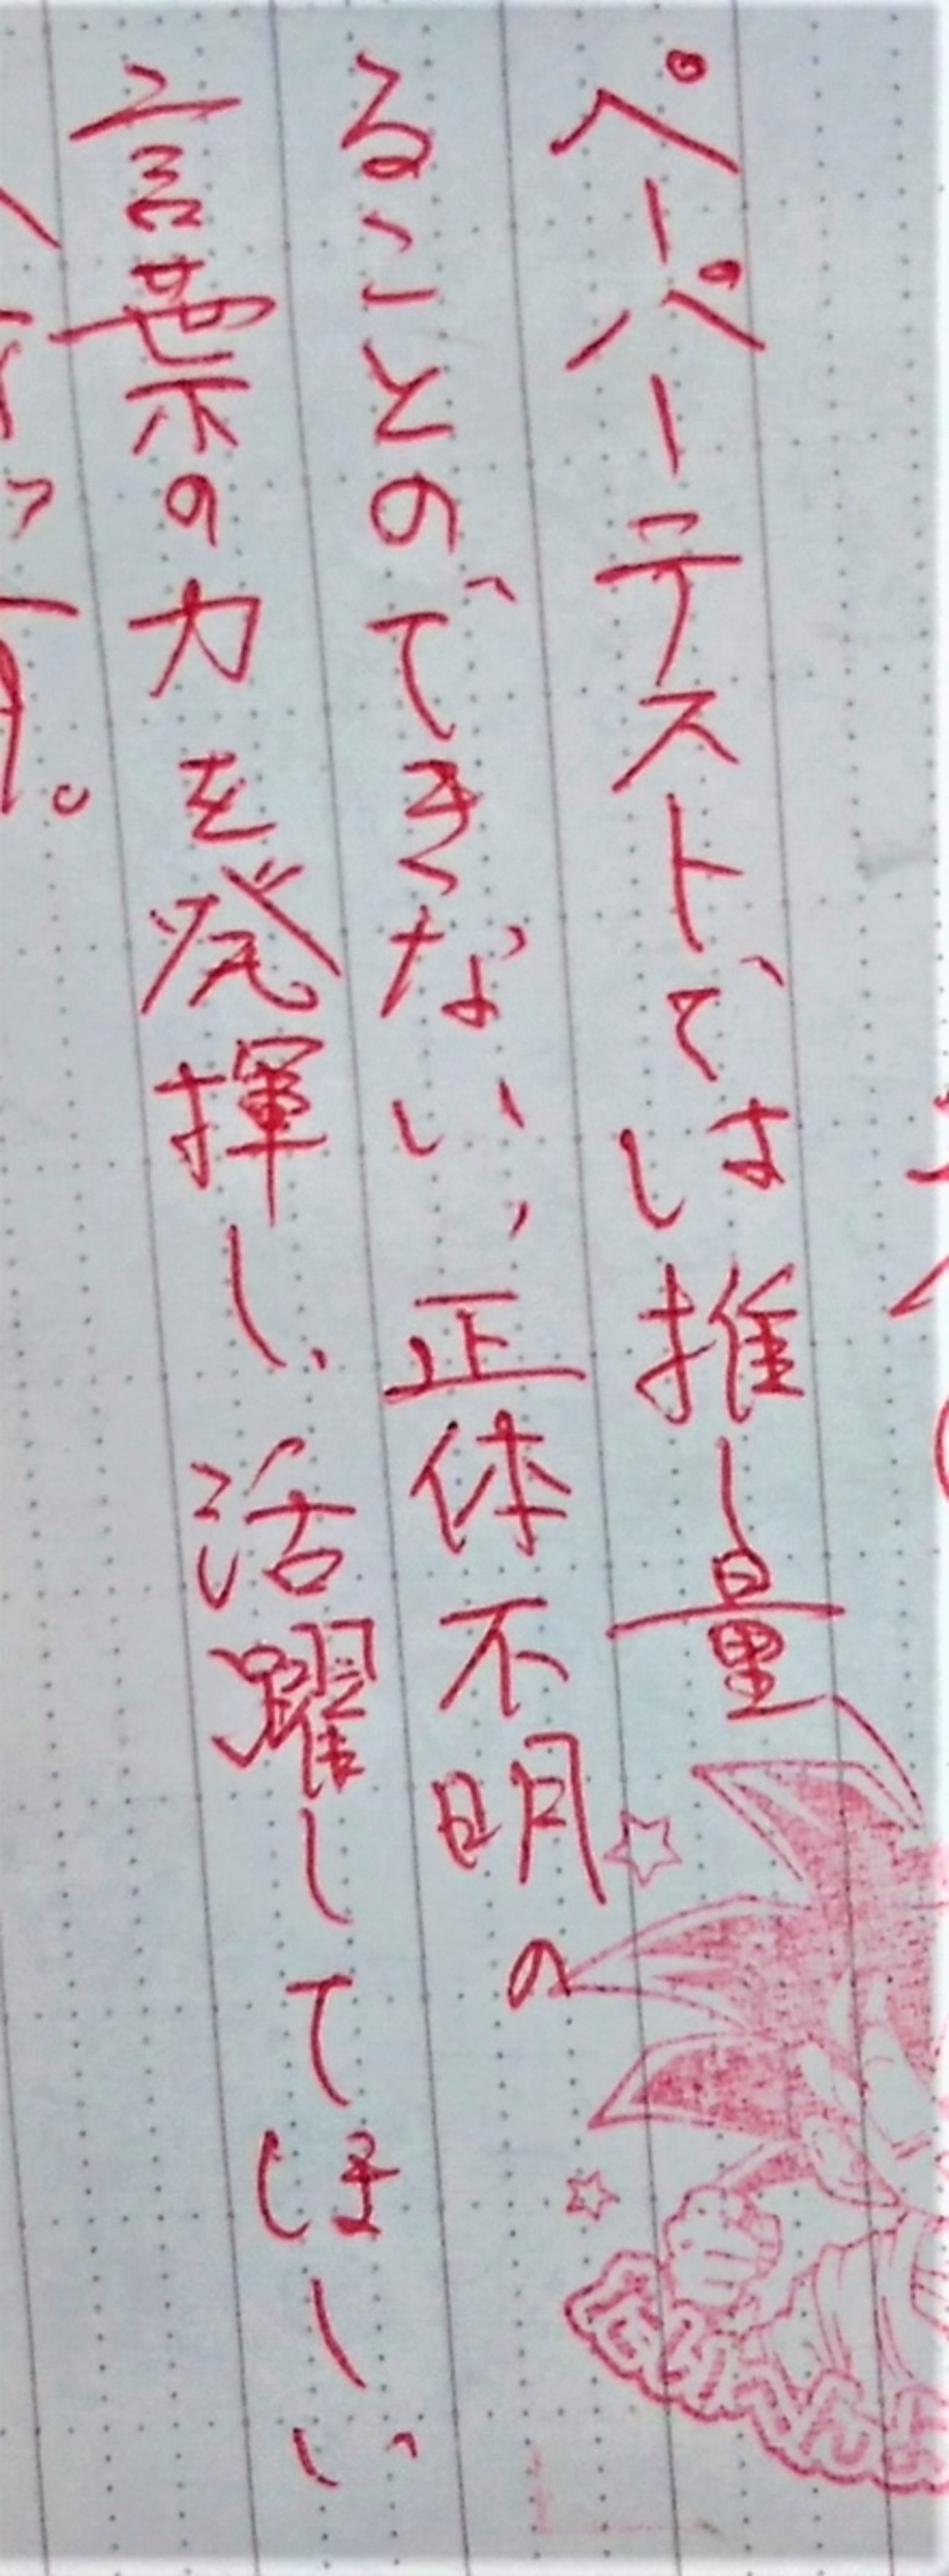 ペーパーテストでは推し量
ることのできない、正体不明の
言葉の力を発揮し、活躍してほしい